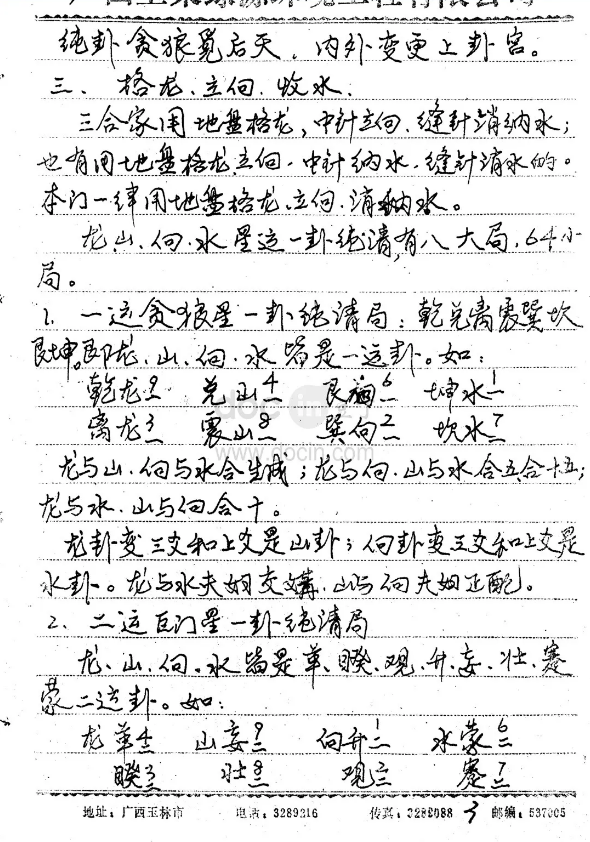 纯卦贪狼覓后天，内外变更上卦宫。
三、格龙、立向、收水：
三合家用地盘格龙，中针立向、缝针消纳水；
也有用地盘格龙、立向、中针纳水、缝针消水的。
本门一律用地盘格龙、立向、消纳水。
龙、山、向、水星运一卦纯清，有八大局，64小
局。
1、一运贪狼星一卦纯清局：乾兑离震巽坎
艮坤。即龙、山、向、水皆是一运卦。如：
乾龙9 兑山4 艮向6 坤水1
离龙3 震山8 巽向2 坎水7
龙与山、向与水合生成；龙与向、山与水合五、合十五；
龙与水、山与向合十。
龙卦变三爻和上爻是山卦；向卦变三爻和上爻是
水卦。龙与水夫妇交媾，山与向夫妇正配。
2、二运巨门星一卦纯清局
龙、山、向、水皆是革、睽、观、升、妄、壮、蹇
蒙二运卦。如：
龙革4二 山妄9二 向升1二 水蒙6二
睽3二 壮8二 观2二 蹇7二
地址：广西玉林市 电话：3289216 传真：3282088 3 邮编：537005
docin
www.docin.com